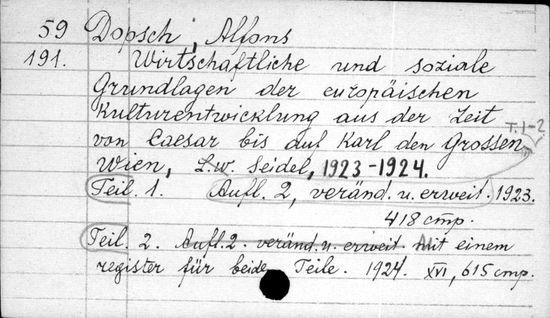 59 Dopsch, Alfons
191. Wirtschaftliche und soziale
Grundlagen der europäischen
Kulturentwicklung aus der Zeit
von Caesar bis auf Karl den Grossen,
T. 1-2
Wien, L.W. Seidel, 1923-1924.
Teil. 1. Aufl. 2, veränd. u. erweit. 1923.
418 стр.
Teil. 2. Aufl. 2. veränd. u. erweit. Mit einem
register für beide Teile. 1924. XVI, 615 стр.